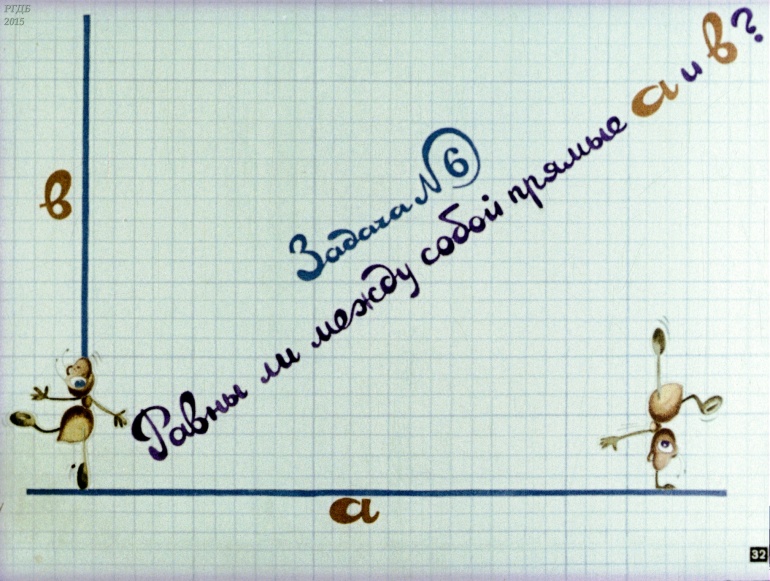 РГДБ
2015
Задача № 6
Равны ли между собой прямые а и в?
в
а
32